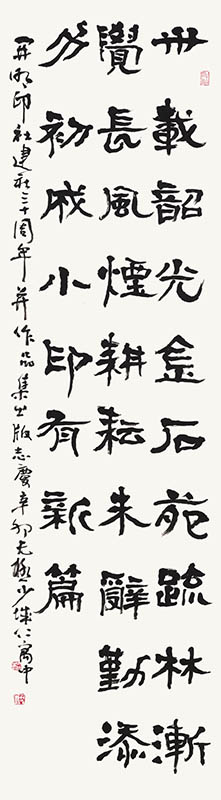 卅載韶光金石苑疏林漸
覺長風煙耕耘未辭勤添
分初成小印有新篇
開明印社建社三十周年并作品集出版志慶辛卯